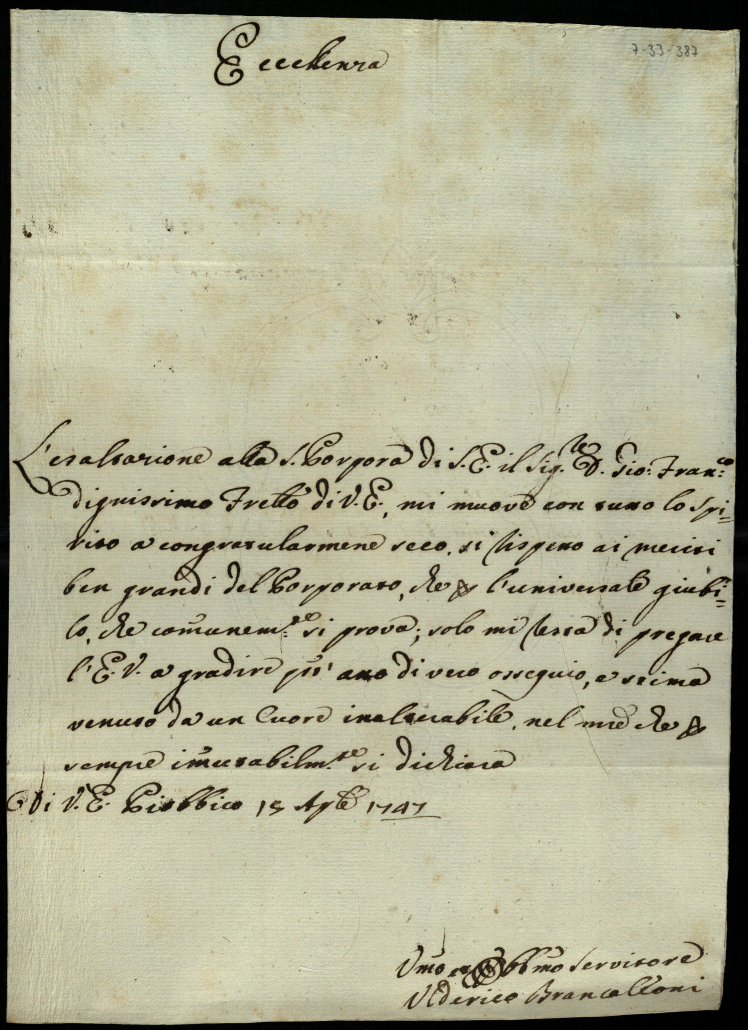 7-33-387
Eccellenza
L'esaltazione alla S. Porpora di S.E. il Sig.re D. Gio: Fran:co
dignissimo Frello di V.E., mi muove con tutto lo spi=
rito a congratularmene seco, sì rispetto ai meriti
ben grandi del Porporato, che p l'universale giubi=
lo, che comunem.te si prova; solo mi resta di pregare
l'E.V. a gradire qto atto di vero ossequio, e stima
venuto da un Cuore inalterabile, nel mre che p
sempre imutabilm.te si dichiara
Di V.E. Piobbico 15 Aple 1747
Vmo ed Obbmo Servitore
Vlderico Brancalloni